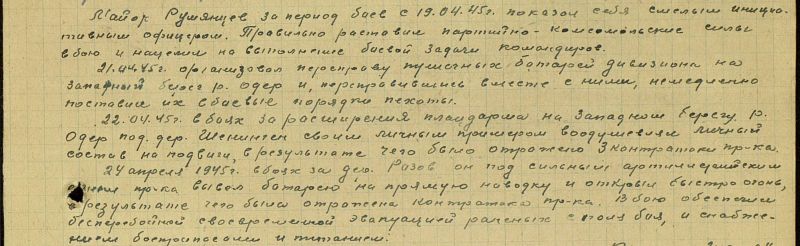 Майор Румянцев за период боев с 19.04.45г. показал себя смелым инициа-
тивным офицером. Правильно раставил партийно-комсомольские силы
в бою и нацелил на выполнение боевой задачи командиров.
21.04.45г. организовал переправу пушечных батарей дивизиона на
Западный берег р. Одер и, переправившись вместе с ними, немедленно
поставил их в боевые порядки пехоты.
22.04.45г. в боях за расширения плацдарма на Западном берегу р.
Одер под. дер. Шенинген своим личным примером воодушевлял личный
состав на подвиги, в результате чего было отражено 3 контратаки пр-ка.
24 апреля 1945г. в боях за дер. Разов он под сильным артиллерийским
огнем пр-ка вывел батарею на прямую наводку и открыл быстро огонь,
в результате чего была отражена контратака пр-ка. В бою обеспечил
бесперебойной своевременной эвакуацией раненых с поля боя, и снабже-
нием боеприпасами и питанием.